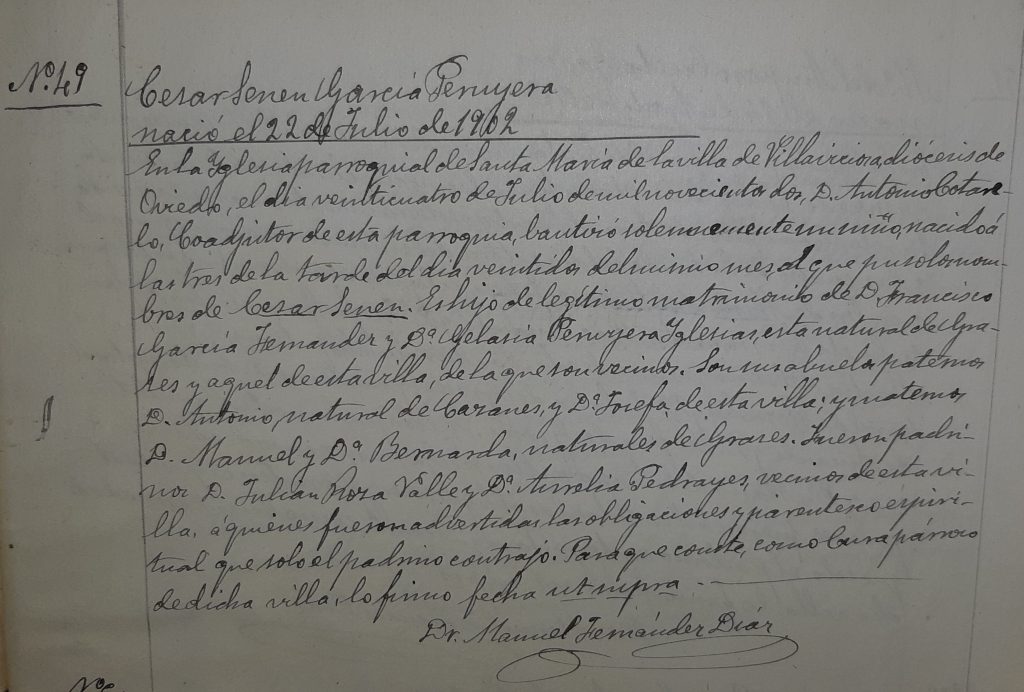 Nº. 49
Cesar Senen García Peruyera
nació el 22 de Julio de 1902
En la Iglesia parroquial de Santa María de la villa de Villaviciosa, diócesis de
Oviedo, el dia veinticuatro de Julio de mil novecientos dos, D. Antonio Cotare-
lo, Coadjutor de esta parroquia, bautizó solemnemente un niño, nacido á
las tres de la tarde del dia veintidos del mismo mes, al que puso los nom-
bres de Cesar Senen. Es hijo de legítimo matrimonio de D. Francisco
García Fernandez y Dª. Gelasia Peruyera Iglesias, esta natural de Gra-
ses y aquel de esta villa, de la que son vecinos. Son sus abuelos paternos
D. Antonio, natural de Cazanes, y Dª. Josefa, de esta villa; y maternos
D. Manuel y Dª. Bernarda, naturales de Grases. Fueron padri-
nos D. Julián Roza Valle y Dª. Aurelia Pedrayes, vecinos de esta vi-
lla, á quiénes fueron advertidas las obligaciones y parentesco espiri-
tual que solo el padrino contrajo. Para que conste, como Cura párroco
de dicha villa, lo firmo fecha ut supra.
Dr. Manuel Fernández Díaz
Nº